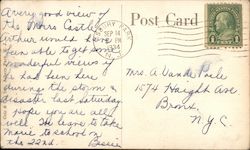 A very good view of
the Morro Castle
Arthur would have
been able to get some
wonderful views if
he had been here
during the storm &
disaster last Saturday
I hope you are all
well. He leave to take
Marie to school on
the 22nd. Bessie
SEP 14
1934
Post Card
Mrs. A. Vande Poele
1574 Haight Ave
Bronx,
N.Y.C.